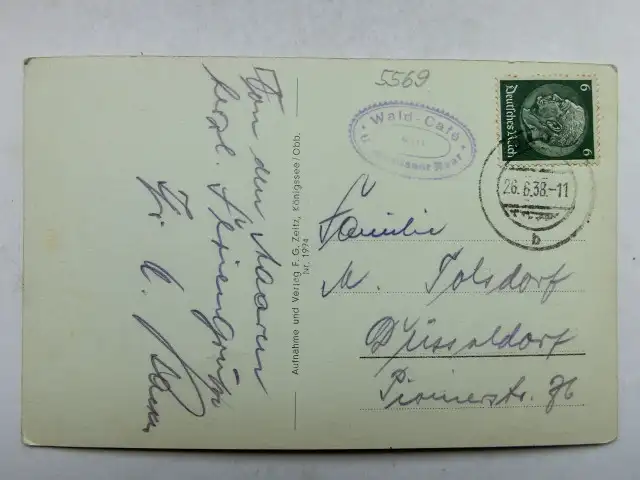 Von den Maaren
herzl. Feriengrüße
Fr. C.
Aufnahme und Verlag F. G. Zeitz, Königssee/Obb.
Nr. 1974
5569
Wald-Café
Deutsches Reich
6
6
26.6.38.-11
b
Familie
M. Tolsdorf
Düsseldorf
Pionierstr. 76